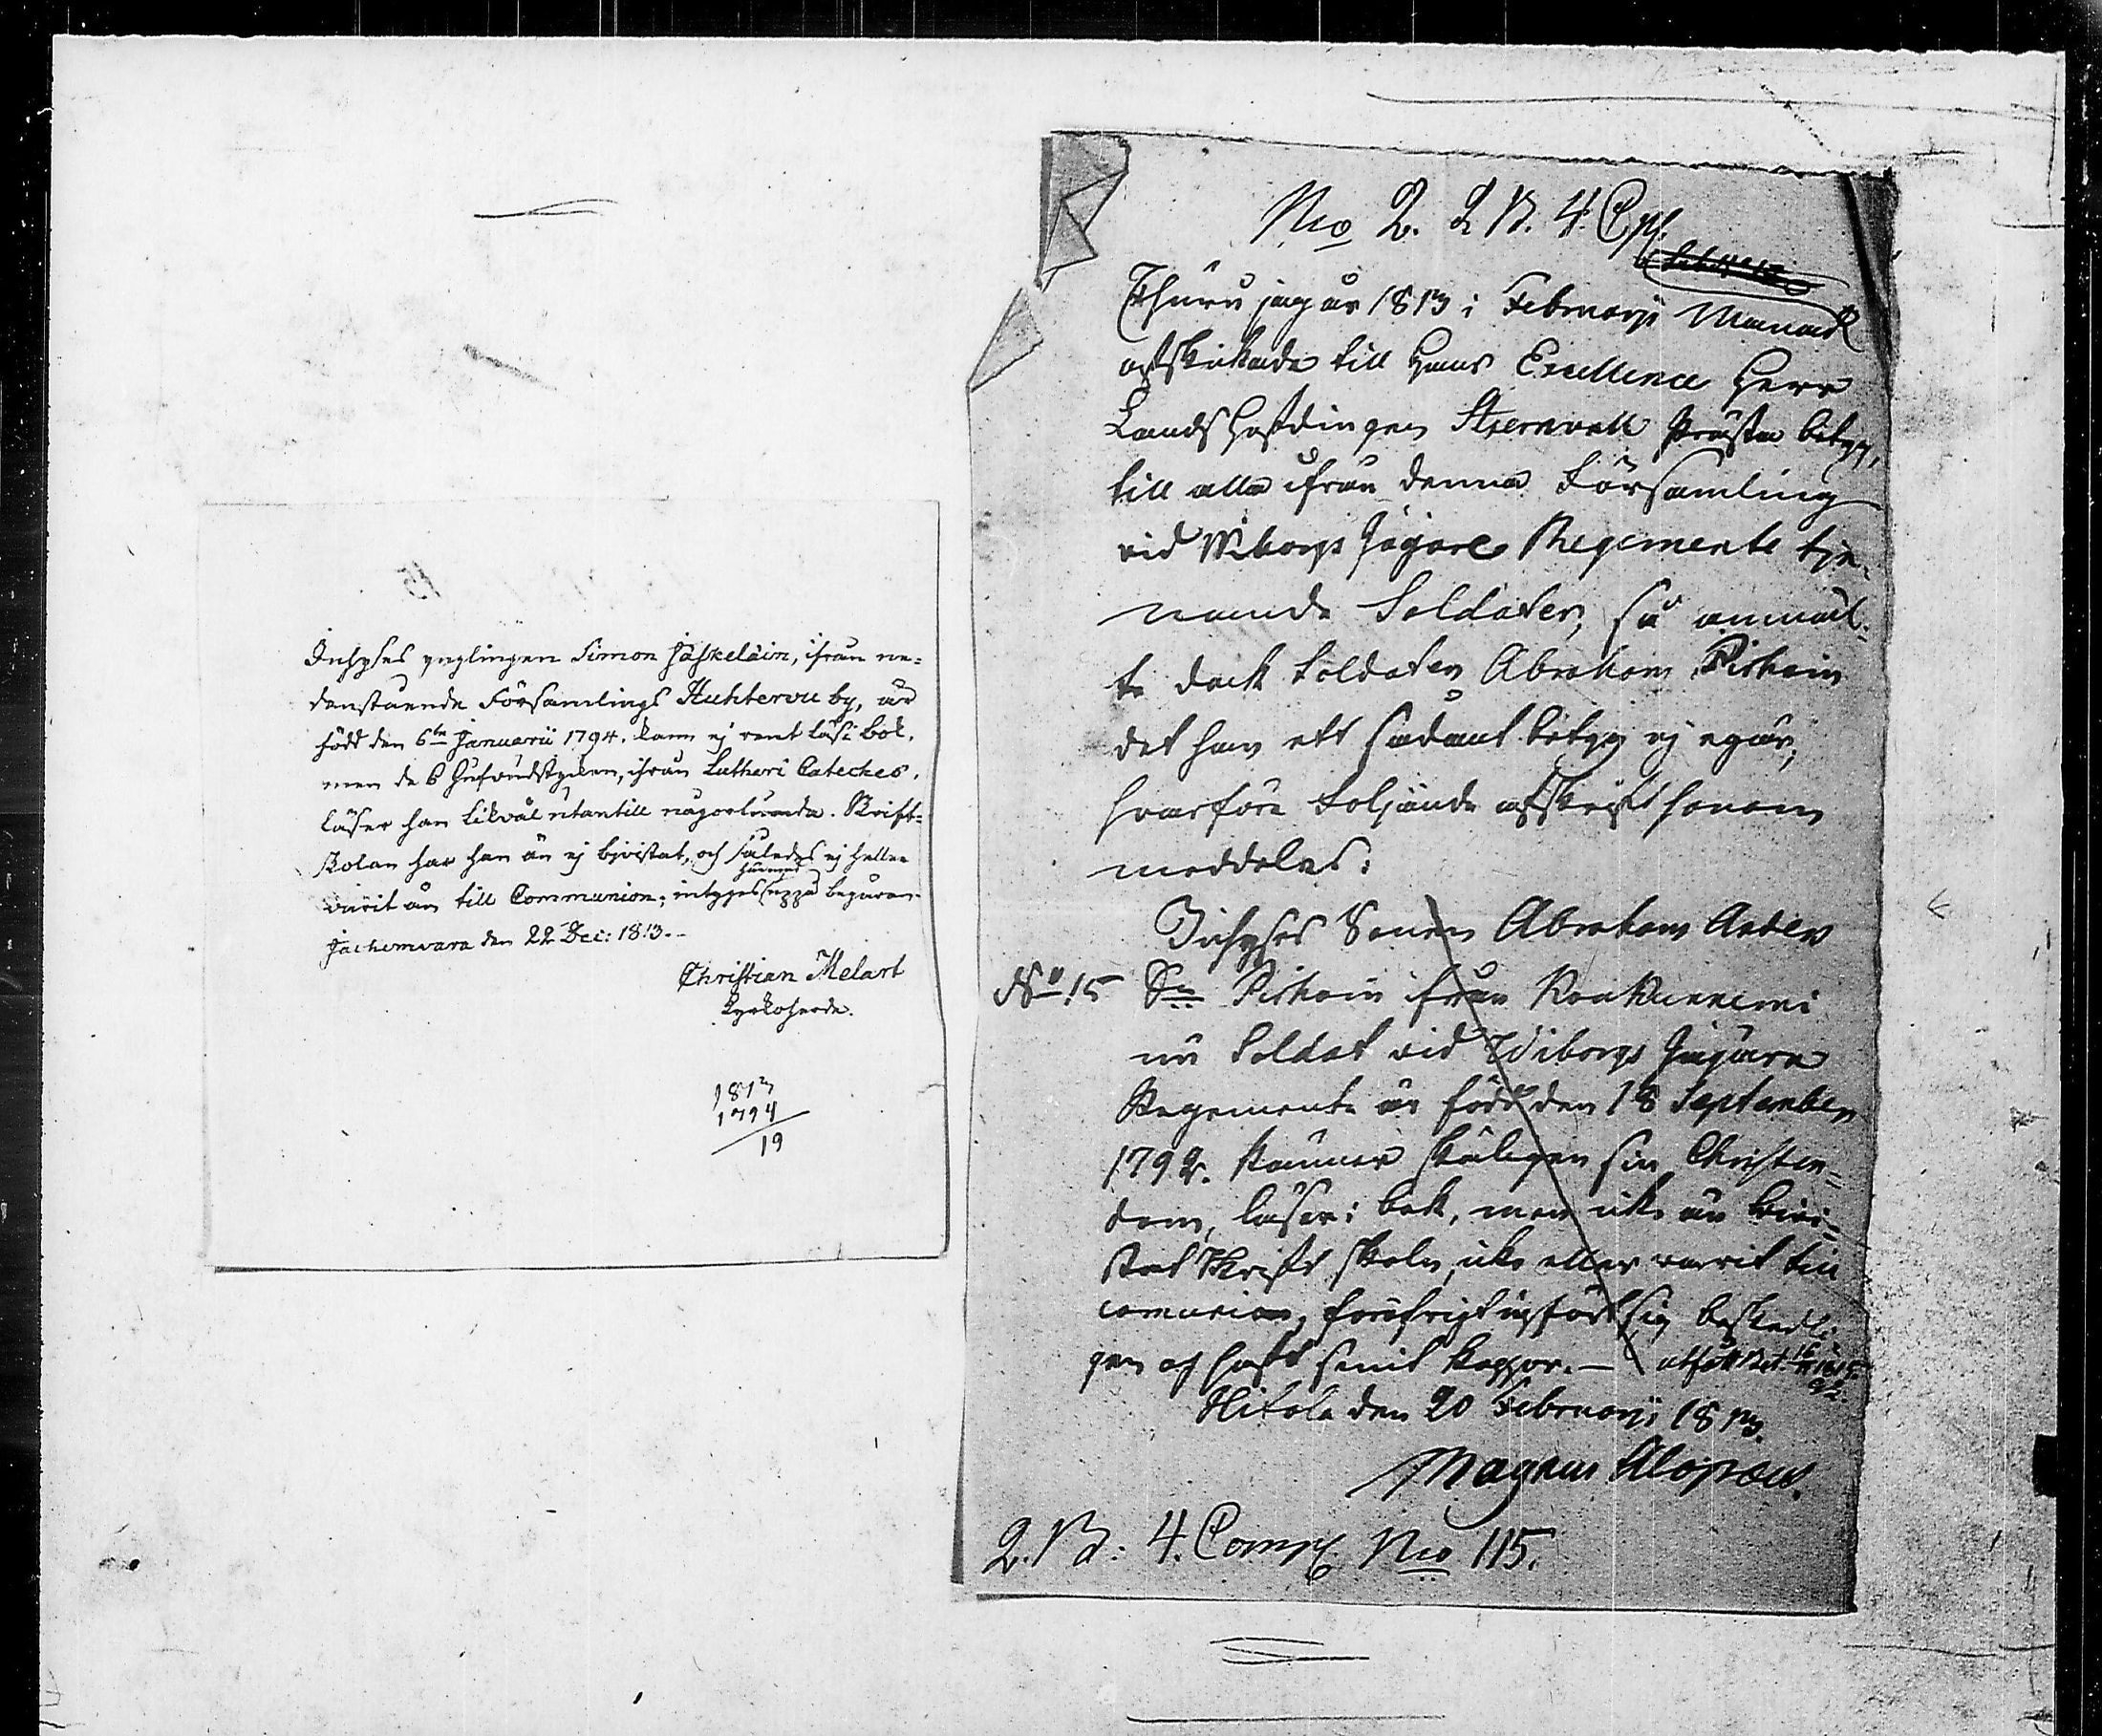 Inhyses ynglingen Simon Jäskeläin, ifrån ne=
danstående Församlings Huhtervu by, är
född den 6te Januarii 1794. kann ej rent läsa i bok,
men de 6 Hufvudstycken, ifrån Lutheri Cateches.
läser han likväl utantill någorlunda. Skrift=
skolan har han än ej bevistat, och således ej heller
varit än till Communion; intygas härmed uppå begäran.
Jachimvara den 22 Dec: 1813.-
Christian Melart
Kyrkoherde.
1813
1794
19
No 2. 2 B. 4 Cp.
Ehuru jag år 1813 i Februarii Månad
afskickade till Hans Excellence Herr
Landshöfdingen Stjernvall Prästa betyg,
till alla ifrån denna Församling
vid Wiborgs Jägare Regemente tje-
nande Soldater, så anmäl-
te dock Soldaten Abraham Pitkäin
det han ett sådant betyg ej egär,
hvarföre följande afskrift honom
meddelas:
Inhyses Sonen Abraham Anders
No 15 Sn Pitkäin från Kankunniemi
nu Soldat vid Wiborgs Jägare
Regemente är född den 18 September
1792. känner skäligen sin Christen-
dom, läser i bok, men icke än bevi-
stat Skrift skola, icke eller varit till
comunion, för öfrigt upfört sig beskedli-
gen och haft sunit koppor. —
Hitola den 20 Februarii 1813.
Magnus Alopæus.
2. B: 4. Comp. No 115.